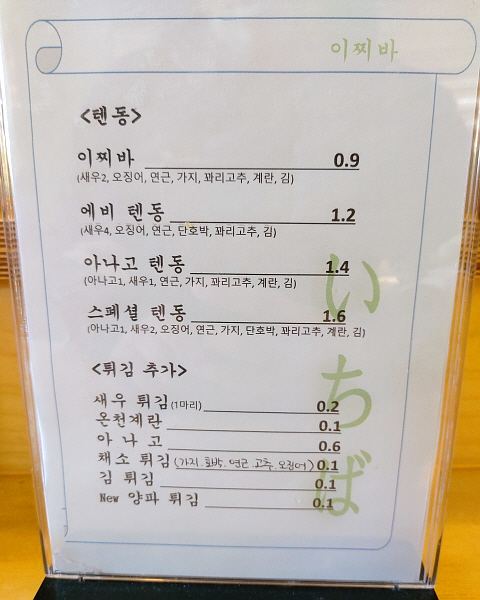 이찌바
<텐동>
이찌바 0.9
(새우2, 오징어, 연근, 가지, 꽈리고추, 계란, 김)
에비 텐동 1.2
(새우4, 오징어, 연근, 단호박, 꽈리고추, 김)
아나고 텐동 1.4
(아나고1, 새우1, 연근, 가지, 꽈리고추, 계란, 김)
스페셜 텐동 1.6
(아나고1, 새우2, 오징어, 연근, 가지, 단호박, 꽈리고추, 계란, 김)
<튀김 추가>
새우 튀김(1마리) 0.2
온천계란 0.1
아나고 0.6
채소 튀김(가지. 호박. 연근. 고추. 오징어) 0.1
김 튀김 0.1
New 양파 튀김 0.1
いちば